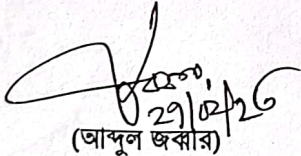 29/02/26
(আব্দুল জব্বার)